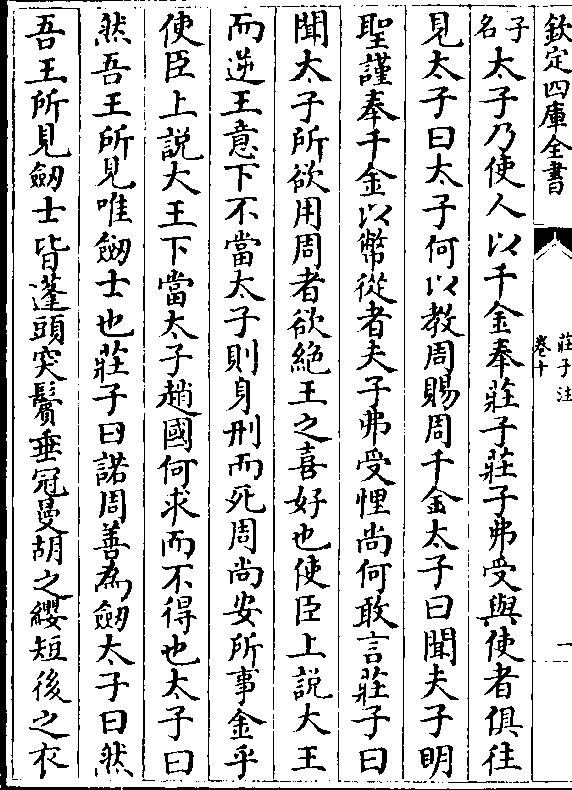 欽定四庫全書
莊子注
卷十
一
名子太子乃使人以千金奉莊子莊子弗受與使者俱往
見太子曰太子何以教周賜周千金太子曰聞夫子明
聖謹奉千金以幣從者夫子弗受悝尚何敢言莊子曰
聞太子所欲用周者欲絶王之喜好也使臣上説大王
而逆王意下不當太子則身刑而死周尚安所事金乎
使臣上説大王下當太子趙國何求而不得也太子曰
然吾王所見唯劒士也莊子曰諾周善為劒太子曰然
吾王所見劒士皆蓬頭突鬢垂冠曼胡之纓短後之衣